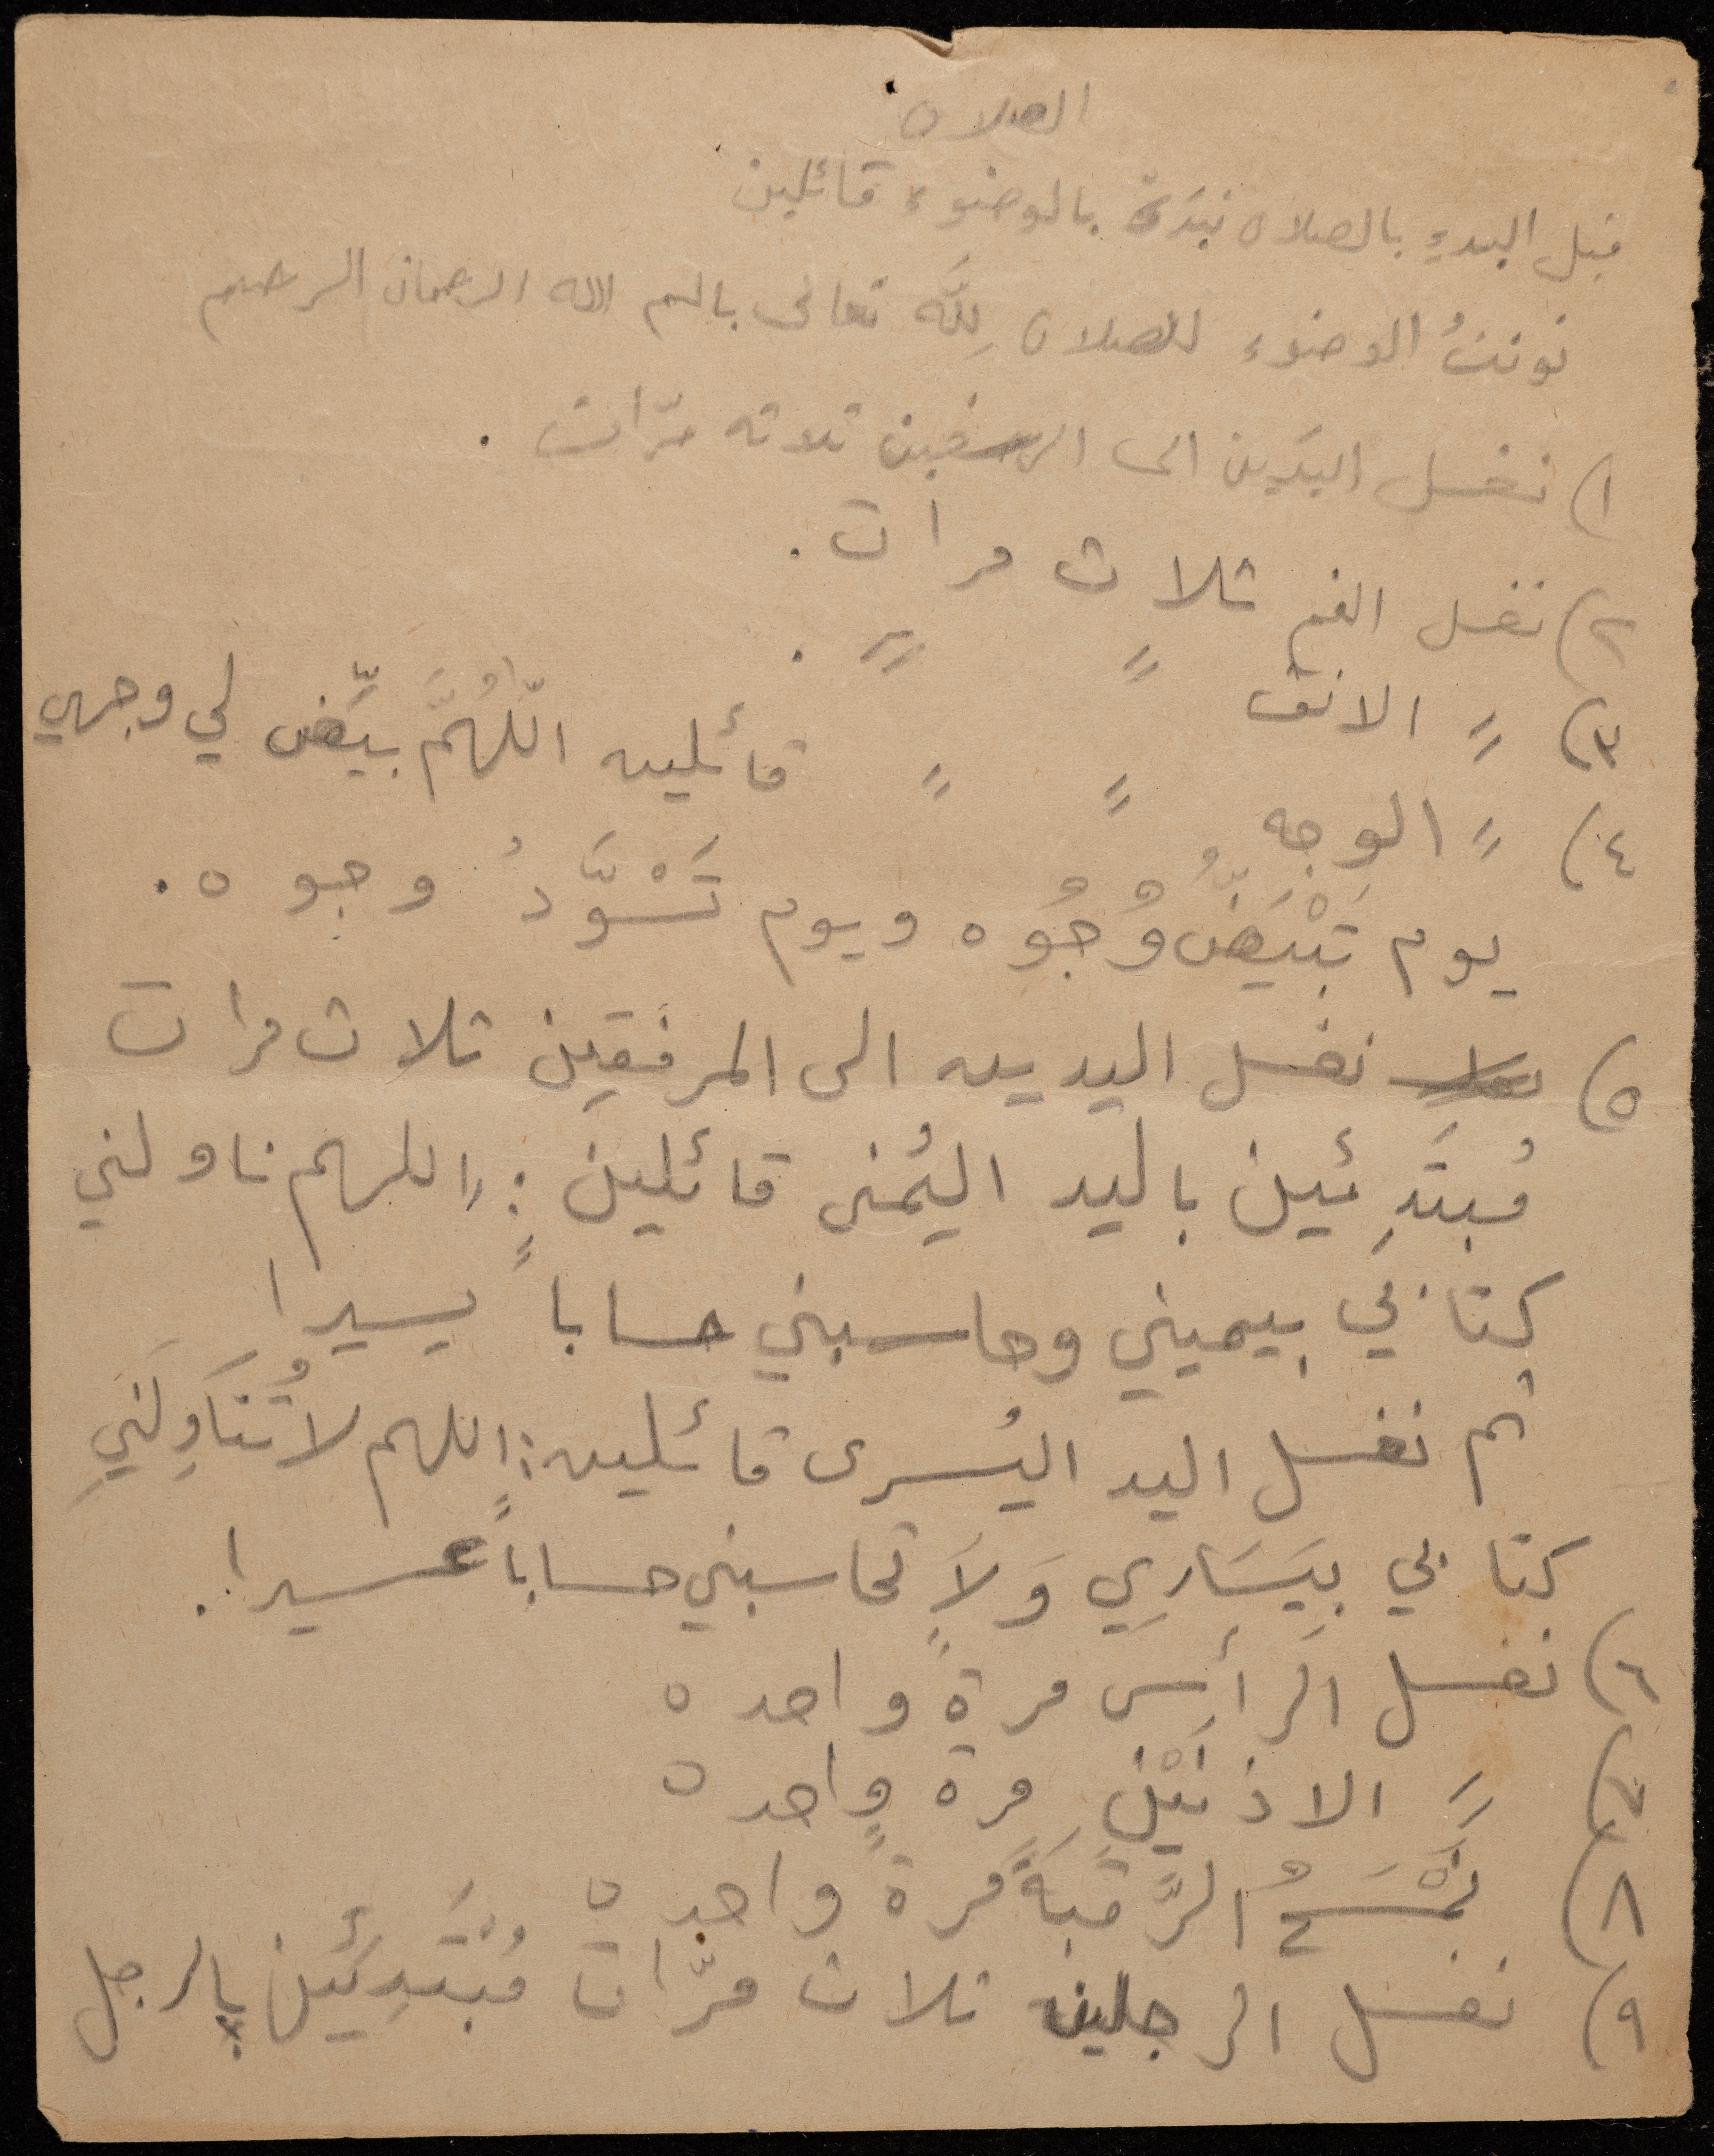 الصلاه
قبل البدءِ بالصلاه نبَدَئ بالوضوء قائلين
نونتُ الوضوء للصلاه لِلَّه تعالى باسم الله الرحمان الرحيم
١) نغسل اليَدين الى الرسغين ثلاثه مرّات .
٢) نغسل الفم ثلاث مرات .
٣) 〃 الانف 〃 〃 .
٤) 〃 الوجه 〃 〃 قائلين اللّهُمَّ بيّض لي وجهي
يوم تَبْيَضُّ وُجُوه ويوم تَسْوَّدُ وجوه .
٥) نغسل اليدين الى المرفقين ثلاث مرات
مُبتَدِئين باليد اليُمنى قائلين : اللهم ناولني
كتابي بيميني وحاسبني حساباً يسيرا
ثم نغسل اليد اليُسرى قائلين : اللهم لا تُنَاوِلَنيِ
كتابي بِيَسَارِي وَلاَ تحاسبني حساباً عسيرا .
٦) نغسل الرأس مرةً واحده
٧) 〃 الاذنَيْنِ مرة واحده
٨) نَمْسَحُ الرَّقَبَةَ مرةً واحده
٩) نغسل الرجلين ثلاث مرّات مُبْتَدِئين بالرجل